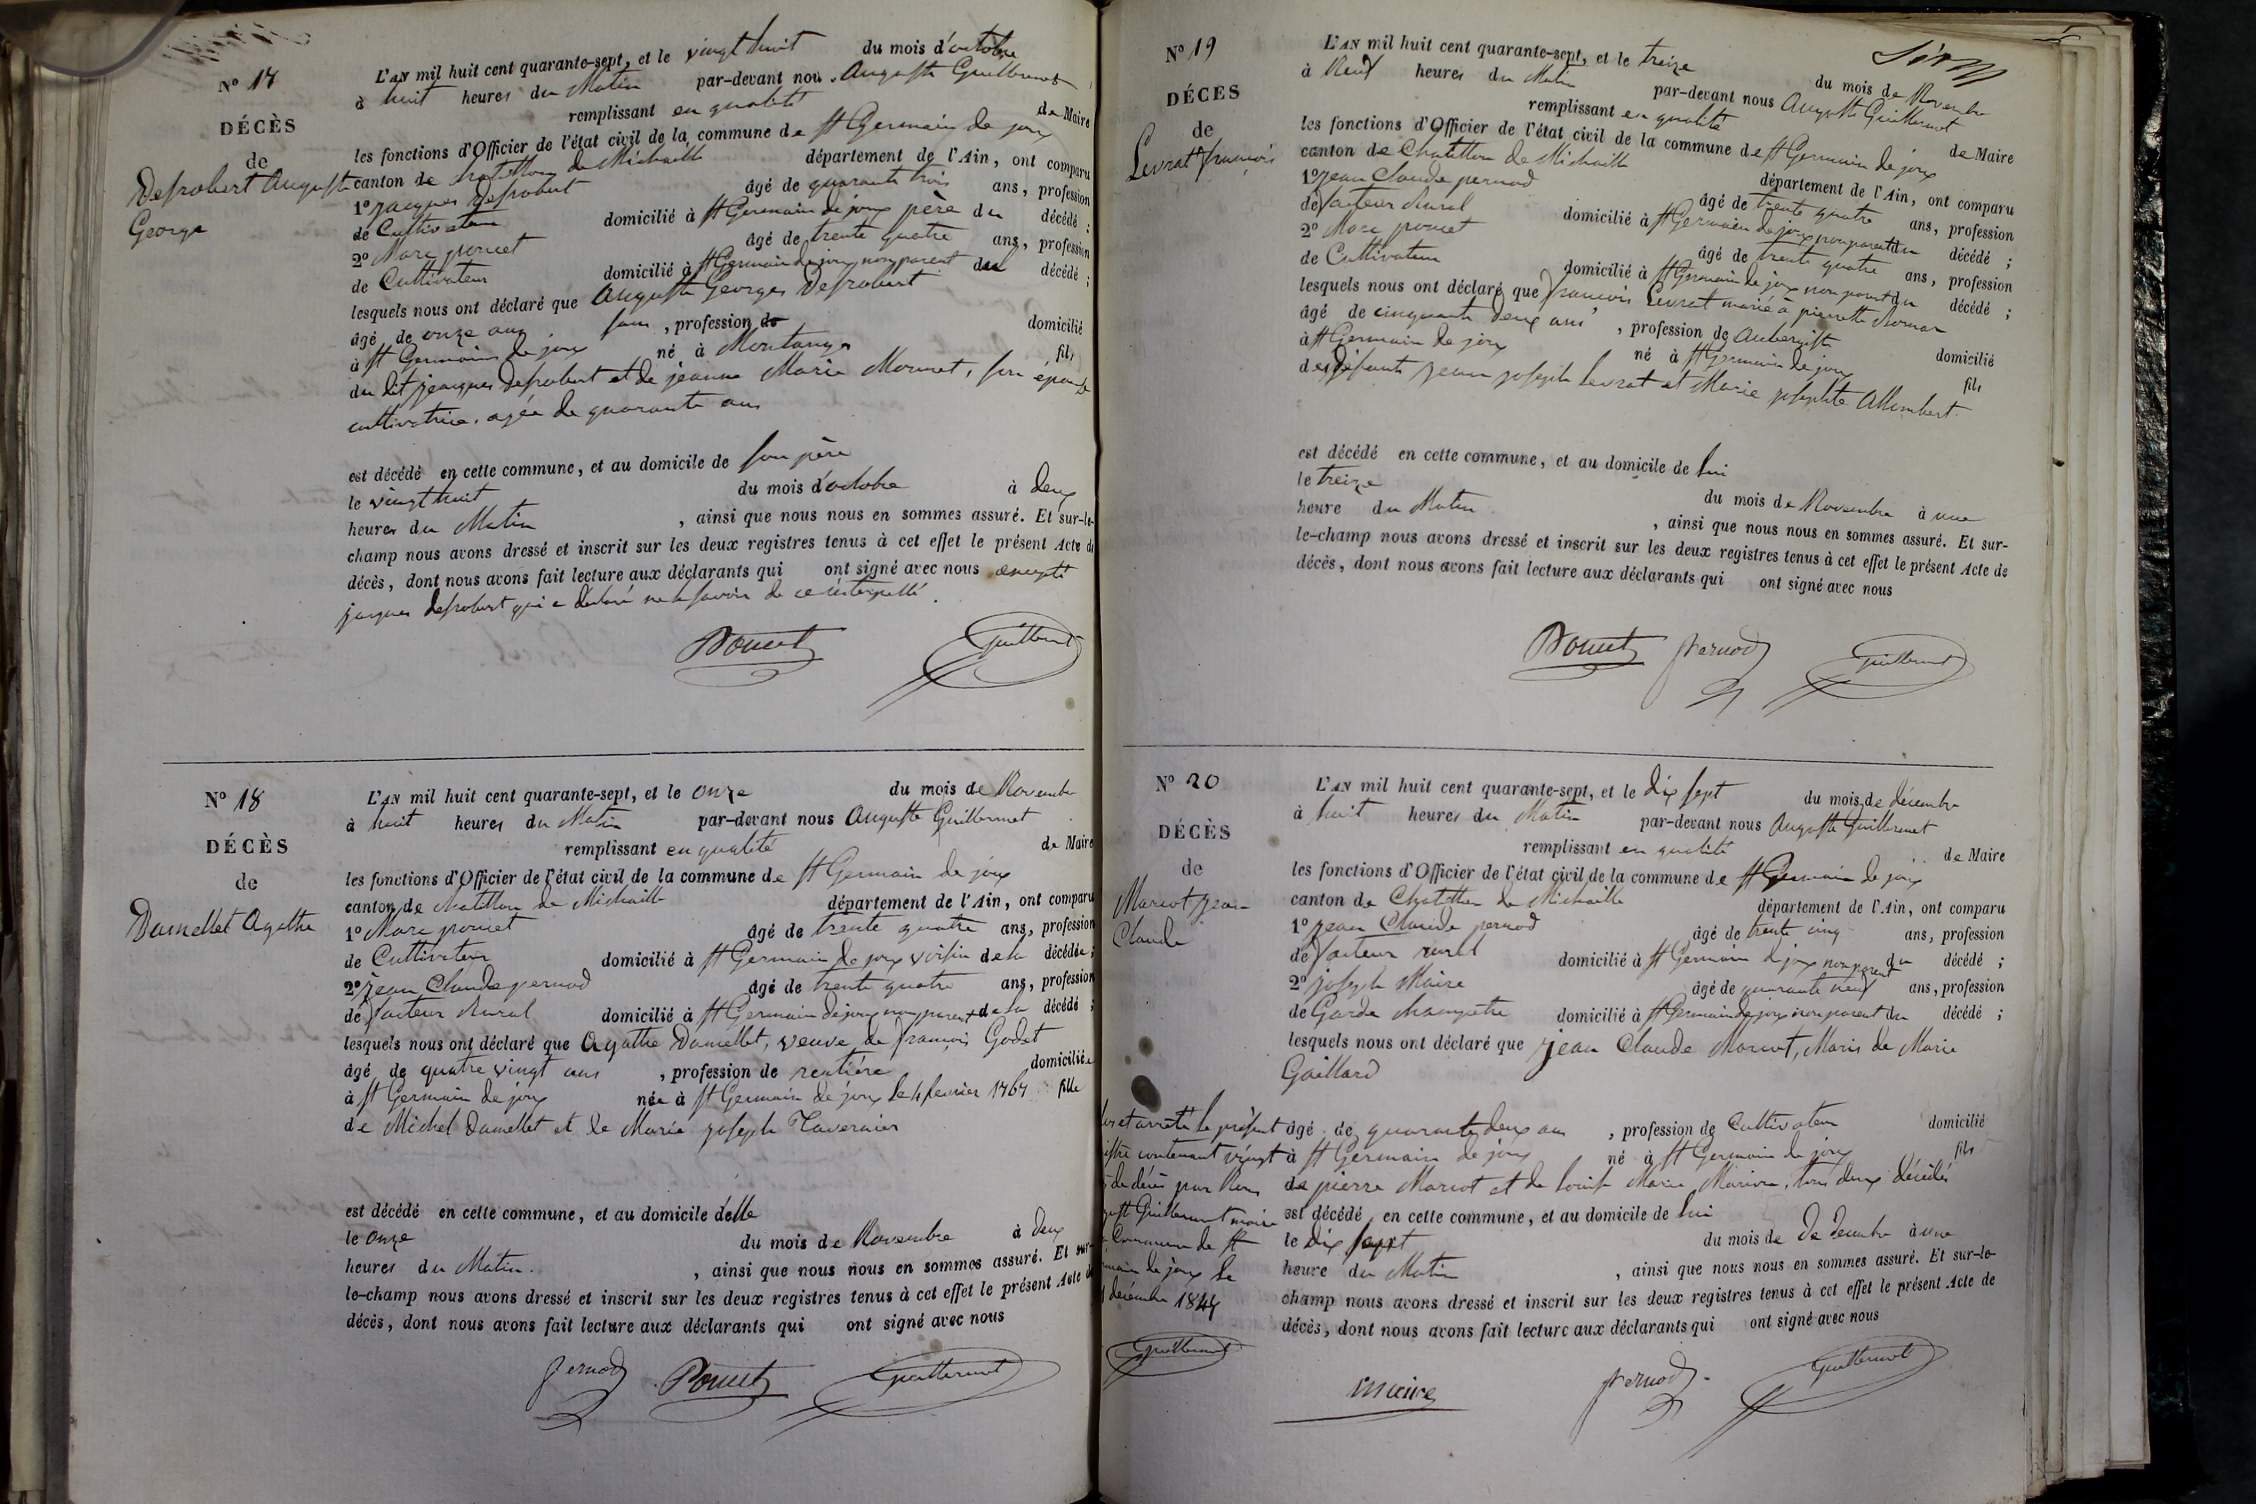 N° 17
DÉCÈS
de
Desrobert Auguste
George
L'AN mil huit cent quarante-sept, et le vingt huit du mois d'octobre
à huit heures du Matin par-devant nous Auguste Guillermet
remplissant en qualité de Maire
les fonctions d'Officier de l'état civil de la commune de St Germain de joux
canton de chatillon de Michaille département de l'Ain, ont comparu
1° jacques Desrobert âgé de quarante trois ans, profession
de Cultivateur domicilié à St Germain de joux père du décédé ;
2° Marc poncet âgé de trente quatre ans, profession
de Cultivateur domicilié à St Germain de joux non parent du décédé ;
lesquels nous ont déclaré que Auguste Georges Desrobert
âgé de onze ans , sans , profession de domicilié
à St Germain de joux né à Montanges fils
du dit jacques Desrobert et de jeanne Marie Mermet, son épouse
cultivatrice, agée de quarante ans
est décédé en cette commune, et au domicile de son père
le vingt huit du mois d'octobre à deux
heures du Matin , ainsi que nous nous en sommes assuré. Et sur-le-
champ nous avons dressé et inscrit sur les deux registres tenus à cet effet le présent Acte de
décès, dont nous avons fait lecture aux déclarants qui ont signé avec nous excepté
jacques desrobert qui a déclaré ne le savoir de ce interpellé.
Poncet Guillermet
N° 18
DÉCÈS
de
Damellet Agathe
L'AN mil huit cent quarante-sept, et le onze du mois de Novembre
à huit heures du Matin par-devant nous Auguste Guillermet
remplissant en qualité de Maire
les fonctions d'Officier de l'état civil de la commune de St Germain de joux
canton de chatillon de Michaille département de l'Ain, ont comparu
1° Marc poncet âgé de trente quatre ans, profession
de Cultivateur domicilié à St Germain de joux voisin de la décédée ;
2° jean Claude pernod âgé de trente quatre ans, profession
de facteur Rural domicilié à St Germain de joux non parent de la décédé ;
lesquels nous ont déclaré que Agathe Damellet, veuve de françois Godet
âgé de quatre vingt ans , profession de rentière domiciliée
à St Germain de joux née à St Germain de joux le 4 fevrier 1767 fille
de Michel Damellet et de Marie joseph Tavernier
est décédé en cette commune, et au domicile d'elle
le onze du mois de Novembre à deux
heures du Matin. , ainsi que nous nous en sommes assuré. Et sur-
le-champ nous avons dressé et inscrit sur les deux registres tenus à cet effet le présent Acte de
décès, dont nous avons fait lecture aux déclarants qui ont signé avec nous
Pernod Poncet Guillermet
N° 19
DÉCÈS
de
Levrat françois
L'AN mil huit cent quarante-sept, et le treize du mois de Novembre
à Neuf heures du Matin par-devant nous Auguste Guillermet
remplissant en qualité de Maire
les fonctions d'Officier de l'état civil de la commune de St Germain de joux
canton de Chatillon de Michaille département de l'Ain, ont comparu
1° jean Claude pernod âgé de trente quatre ans, profession
de facteur Rural domicilié à St Germain de joux non parent du décédé ;
2° Marc poncet âgé de trente quatre ans, profession
de Cultivateur domicilié à St Germain de joux non parent du décédé ;
lesquels nous ont déclaré que françois Levrat marié à pierrette
âgé de cinquante deux ans , profession de Aubergiste domicilié
à St Germain de joux né à St Germain de joux fils
des défunts jean joseph Levrat et Marie josephte Allombert
est décédé en cette commune, et au domicile de lui
le treize du mois de Novembre à une
heure du Matin , ainsi que nous nous en sommes assuré. Et sur-
le-champ nous avons dressé et inscrit sur les deux registres tenus à cet effet le présent Acte de
décès, dont nous avons fait lecture aux déclarants qui ont signé avec nous
Poncet Pernod Guillermet
N° 20
DÉCÈS
de
Marcot jean
Claude
L'AN mil huit cent quarante-sept, et le dix sept du mois de décembre
à huit heures du Matin par-devant nous Auguste Guillermet
remplissant en qualité de Maire
les fonctions d'Officier de l'état civil de la commune de St Germain de joux
canton de Chatillon de Michaille département de l'Ain, ont comparu
1° jean Claude pernod âgé de trente cinq ans, profession
de facteur rural domicilié à St Germain de joux non parent du décédé ;
2° joseph Maire âgé de quarante neuf ans, profession
de Garde champetre domicilié à St Germain de joux non parent du décédé ;
lesquels nous ont déclaré que jean Claude Marcot, Maris de Marie
Gaillard
âgé de quarante deux ans , profession de Cultivateur domicilié
à St Germain de joux né à St Germain de joux fils
de pierre Marcot et de louise Marie, tous deux décédés
est décédé en cette commune, et au domicile de lui
le dix sept du mois de Decembre à une
heure du Matin , ainsi que nous nous en sommes assuré. Et sur-le-
champ nous avons dressé et inscrit sur les deux registres tenus à cet effet le présent Acte de
décès, dont nous avons fait lecture aux déclarants qui ont signé avec nous
et arrêté le présent
contenant vingt
de décès par Nous
Guillermet maire
Commune de St
de joux le
décembre 1847
Guillermet
Maire Pernod Guillermet